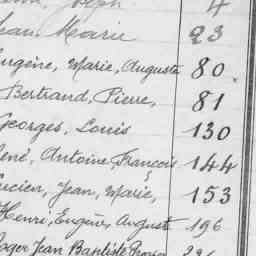 Joseph 4
Jean, Marie 23
Eugène, Marie, Auguste 80.
Bertrand, Pierre, 81
Georges, Louis 130
René, Antoine, François 144
Lucien, Jean, Marie, 153
Henri, Eugène, August 196
Roger Jean Baptiste